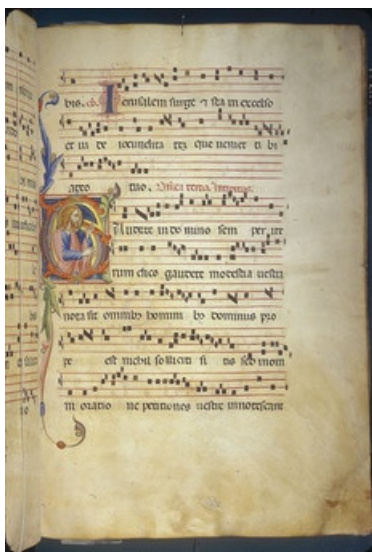 bis. co. Ierusalem surge ⁊ sta in excelso
et ui de iocundita tez que ueniet ti bi
a deo tuo. Dñica tertia. Introitus.
Gaudete in do mino sem per ite
rum dico gaudete modestia uestra
nota sit omnibꝫ homini bꝫ dominus pro
pe est nichil solliciti si tis sed in om
ni oratio ne petitiones uestre innotescant